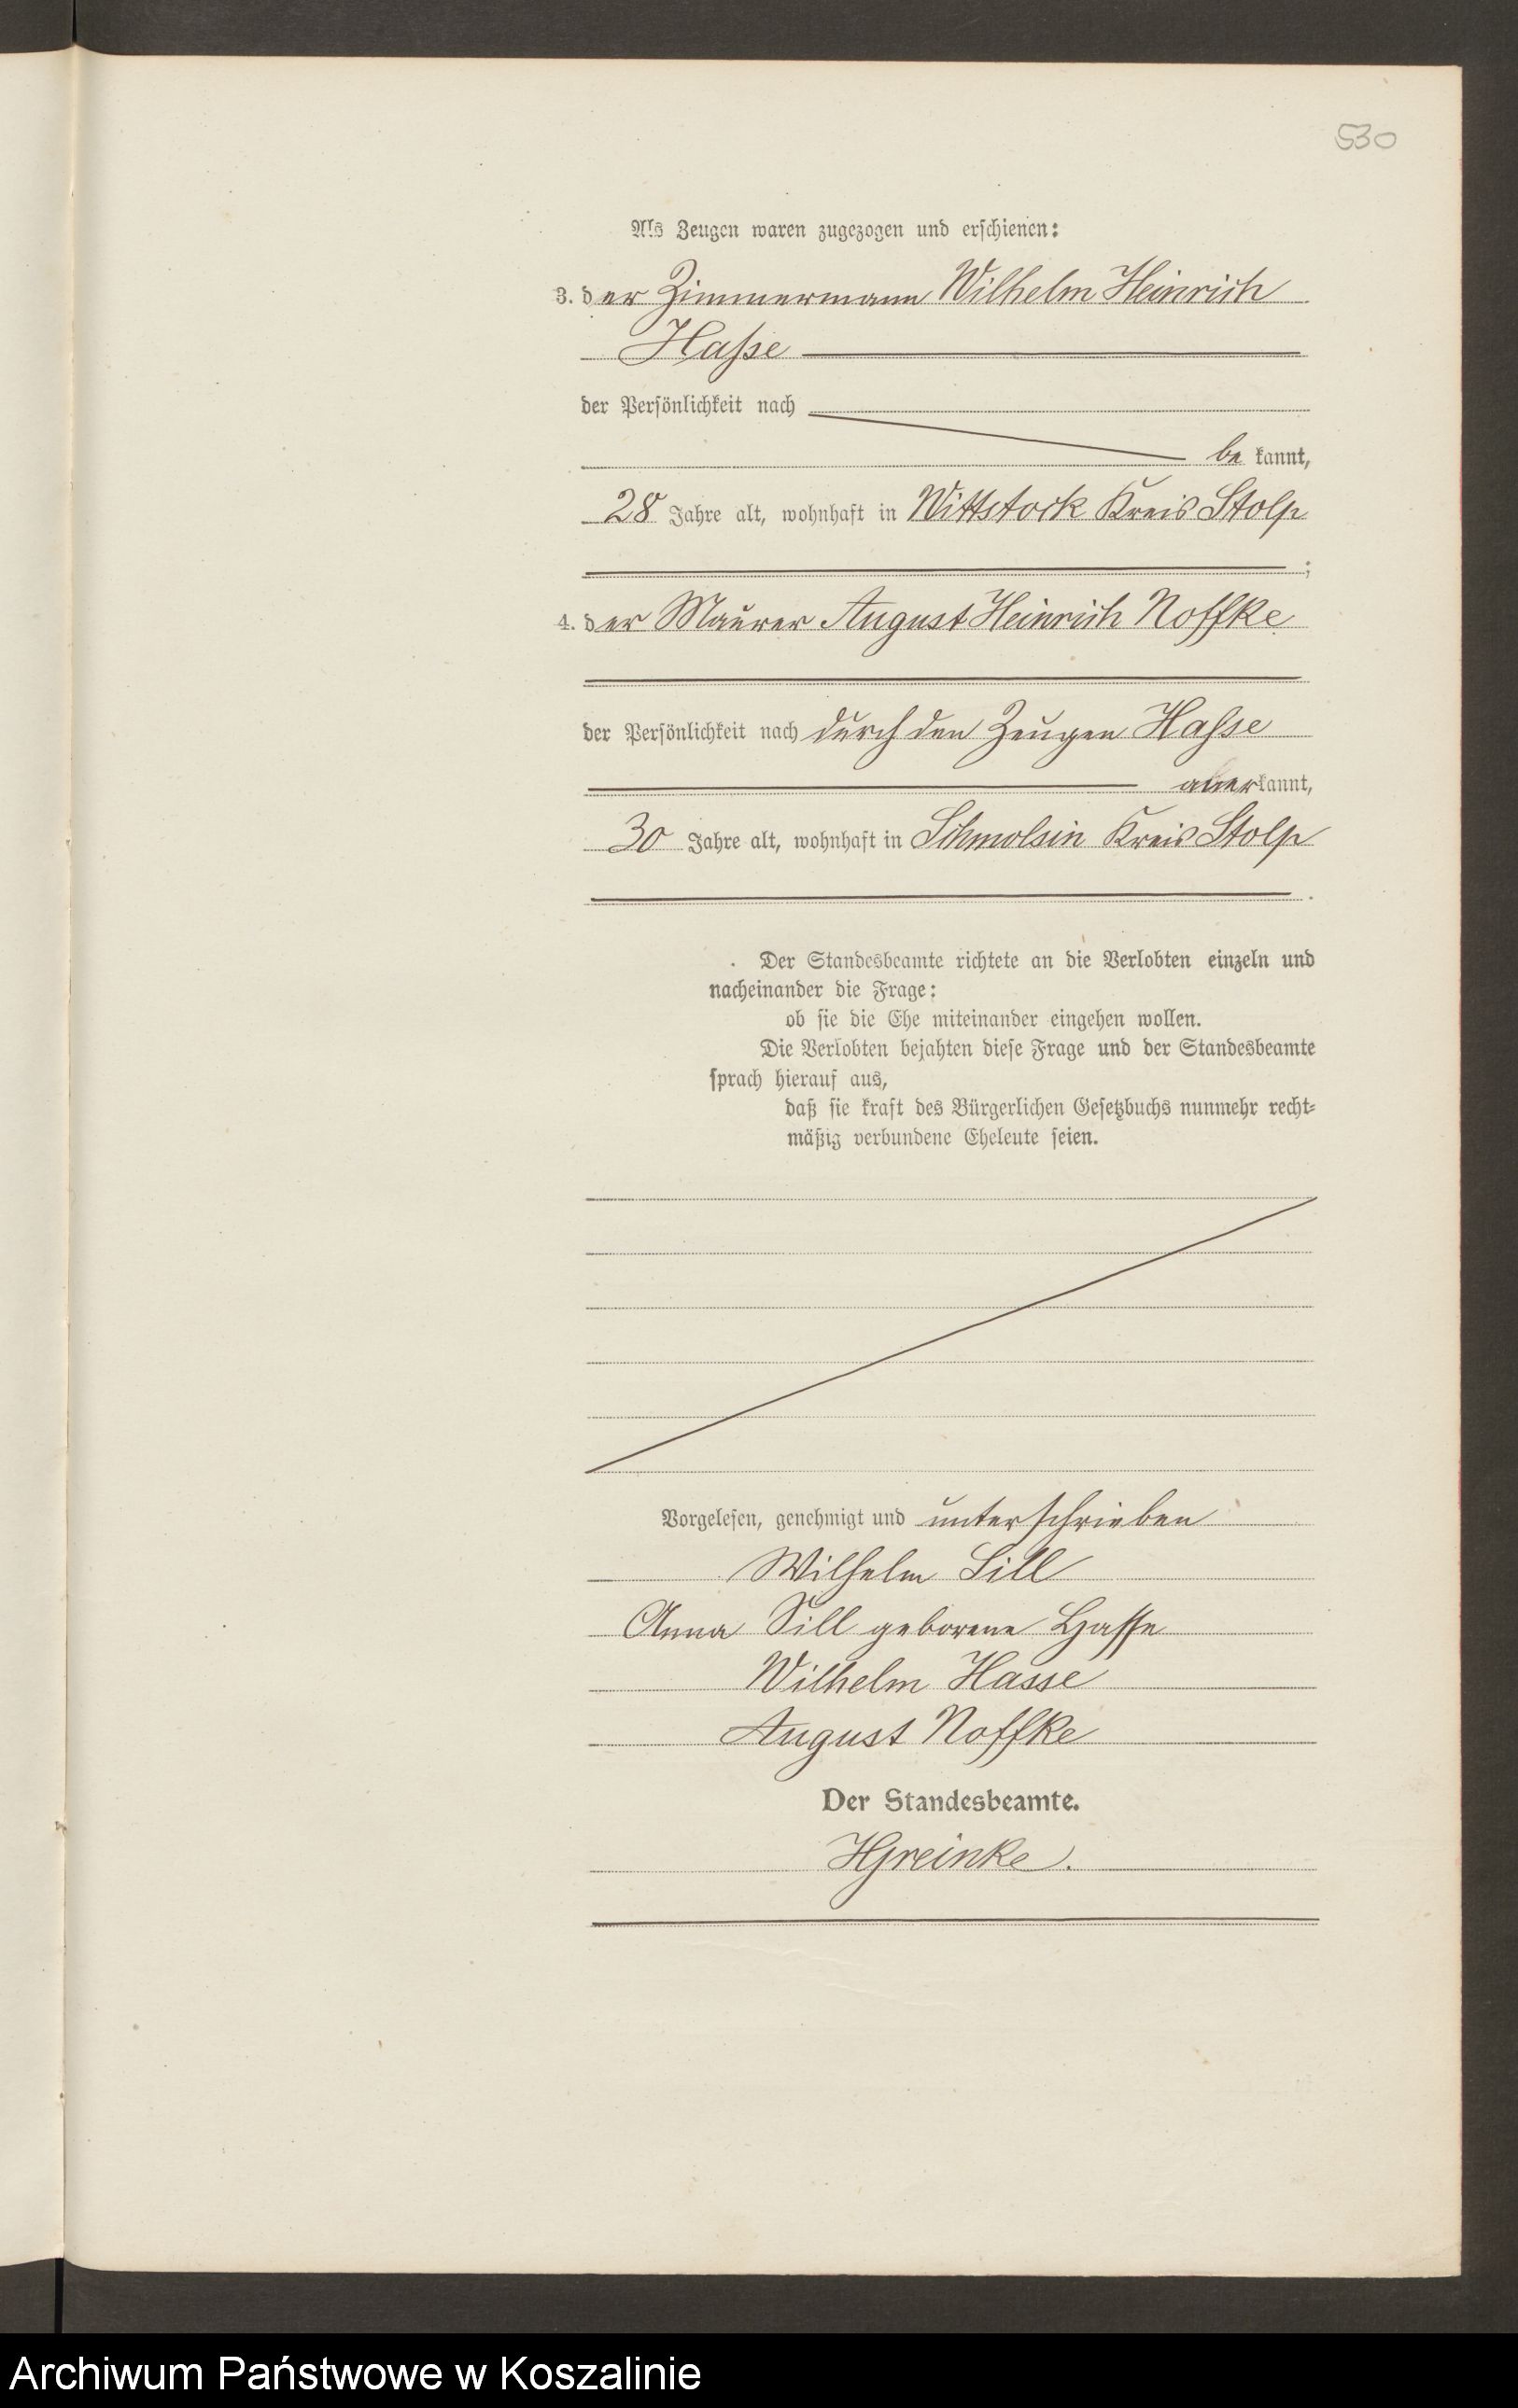 530
Als Zeugen waren zugezogen und erschienen:
3. der Zimmermann Wilhelm Heinrich
Haſse
der Persönlichkeit nach
be kannt,
28 Jahre alt, wohnhaft in Wittstock Kreis Stolp
;
4. der Maurer August Heinrich Noffke
der Persönlichkeit nach durch den Zeugen Haſse
anerkannt,
30 Jahre alt, wohnhaft in Schmolsin Kreis Stolp
.
Der Standesbeamte richtete an die Verlobten einzeln und
nacheinander die Frage:
ob sie die Ehe miteinander eingehen wollen.
Die Verlobten bejahten diese Frage und der Standesbeamte
sprach hierauf aus,
daß sie kraft des Bürgerlichen Gesetzbuchs nunmehr recht-
mäßig verbundene Eheleute seien.
Vorgelesen, genehmigt und unterschrieben
Wilhelm Sill
Anna Sill geborene Hasse
Wilhelm Hasse
August Noffke
Der Standesbeamte.
HGreinke.
Archiwum Państwowe w Koszalinie